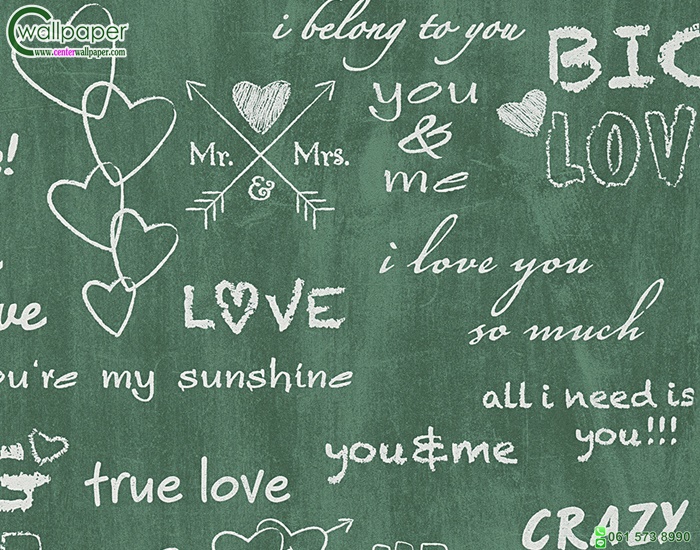 wallpaper
www.centerwallpaper.com
i belong to you
BIG
LOV
you
&
me
Mr. Mrs.
&
i love you
so much
LOVE
ve
ou're my sunshine
all i need is
you!!!
you&me
true love
CRAZY
061 573 8990